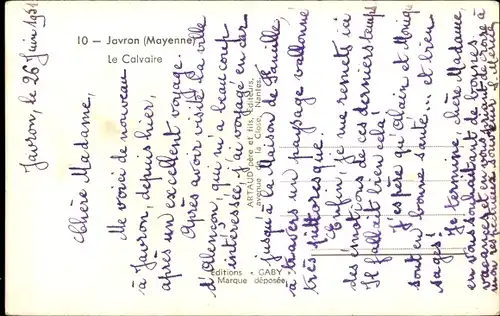 10 — Javron (Mayenne)
Le Calvaire
Javron, le 26 Juin 1951
Chère Madame,
Me voici de nouveau
à Javron, depuis hier,
après un excellent voyage.
Après avoir visité la ville
d'Alençon, qui m'a beaucoup
intéressée, j'ai voyagé en car
jusqu'à la Maison de Famille,
à travers un paysage vallonné
très pittoresque.
Enfin, je me remets ici
des émotions de ces derniers temps
Il fallait bien cela!
J'espère qu'Alain et Monique
sont en bonne santé... et bien
sages!
Je termine, chère Madame,
en vous souhaitant de bonnes
vacances et en vous priant de croire à
ARTAUD père et fils, Editeurs,
avenue de la Close, Nantes
Editions - GABY
Marque déposée